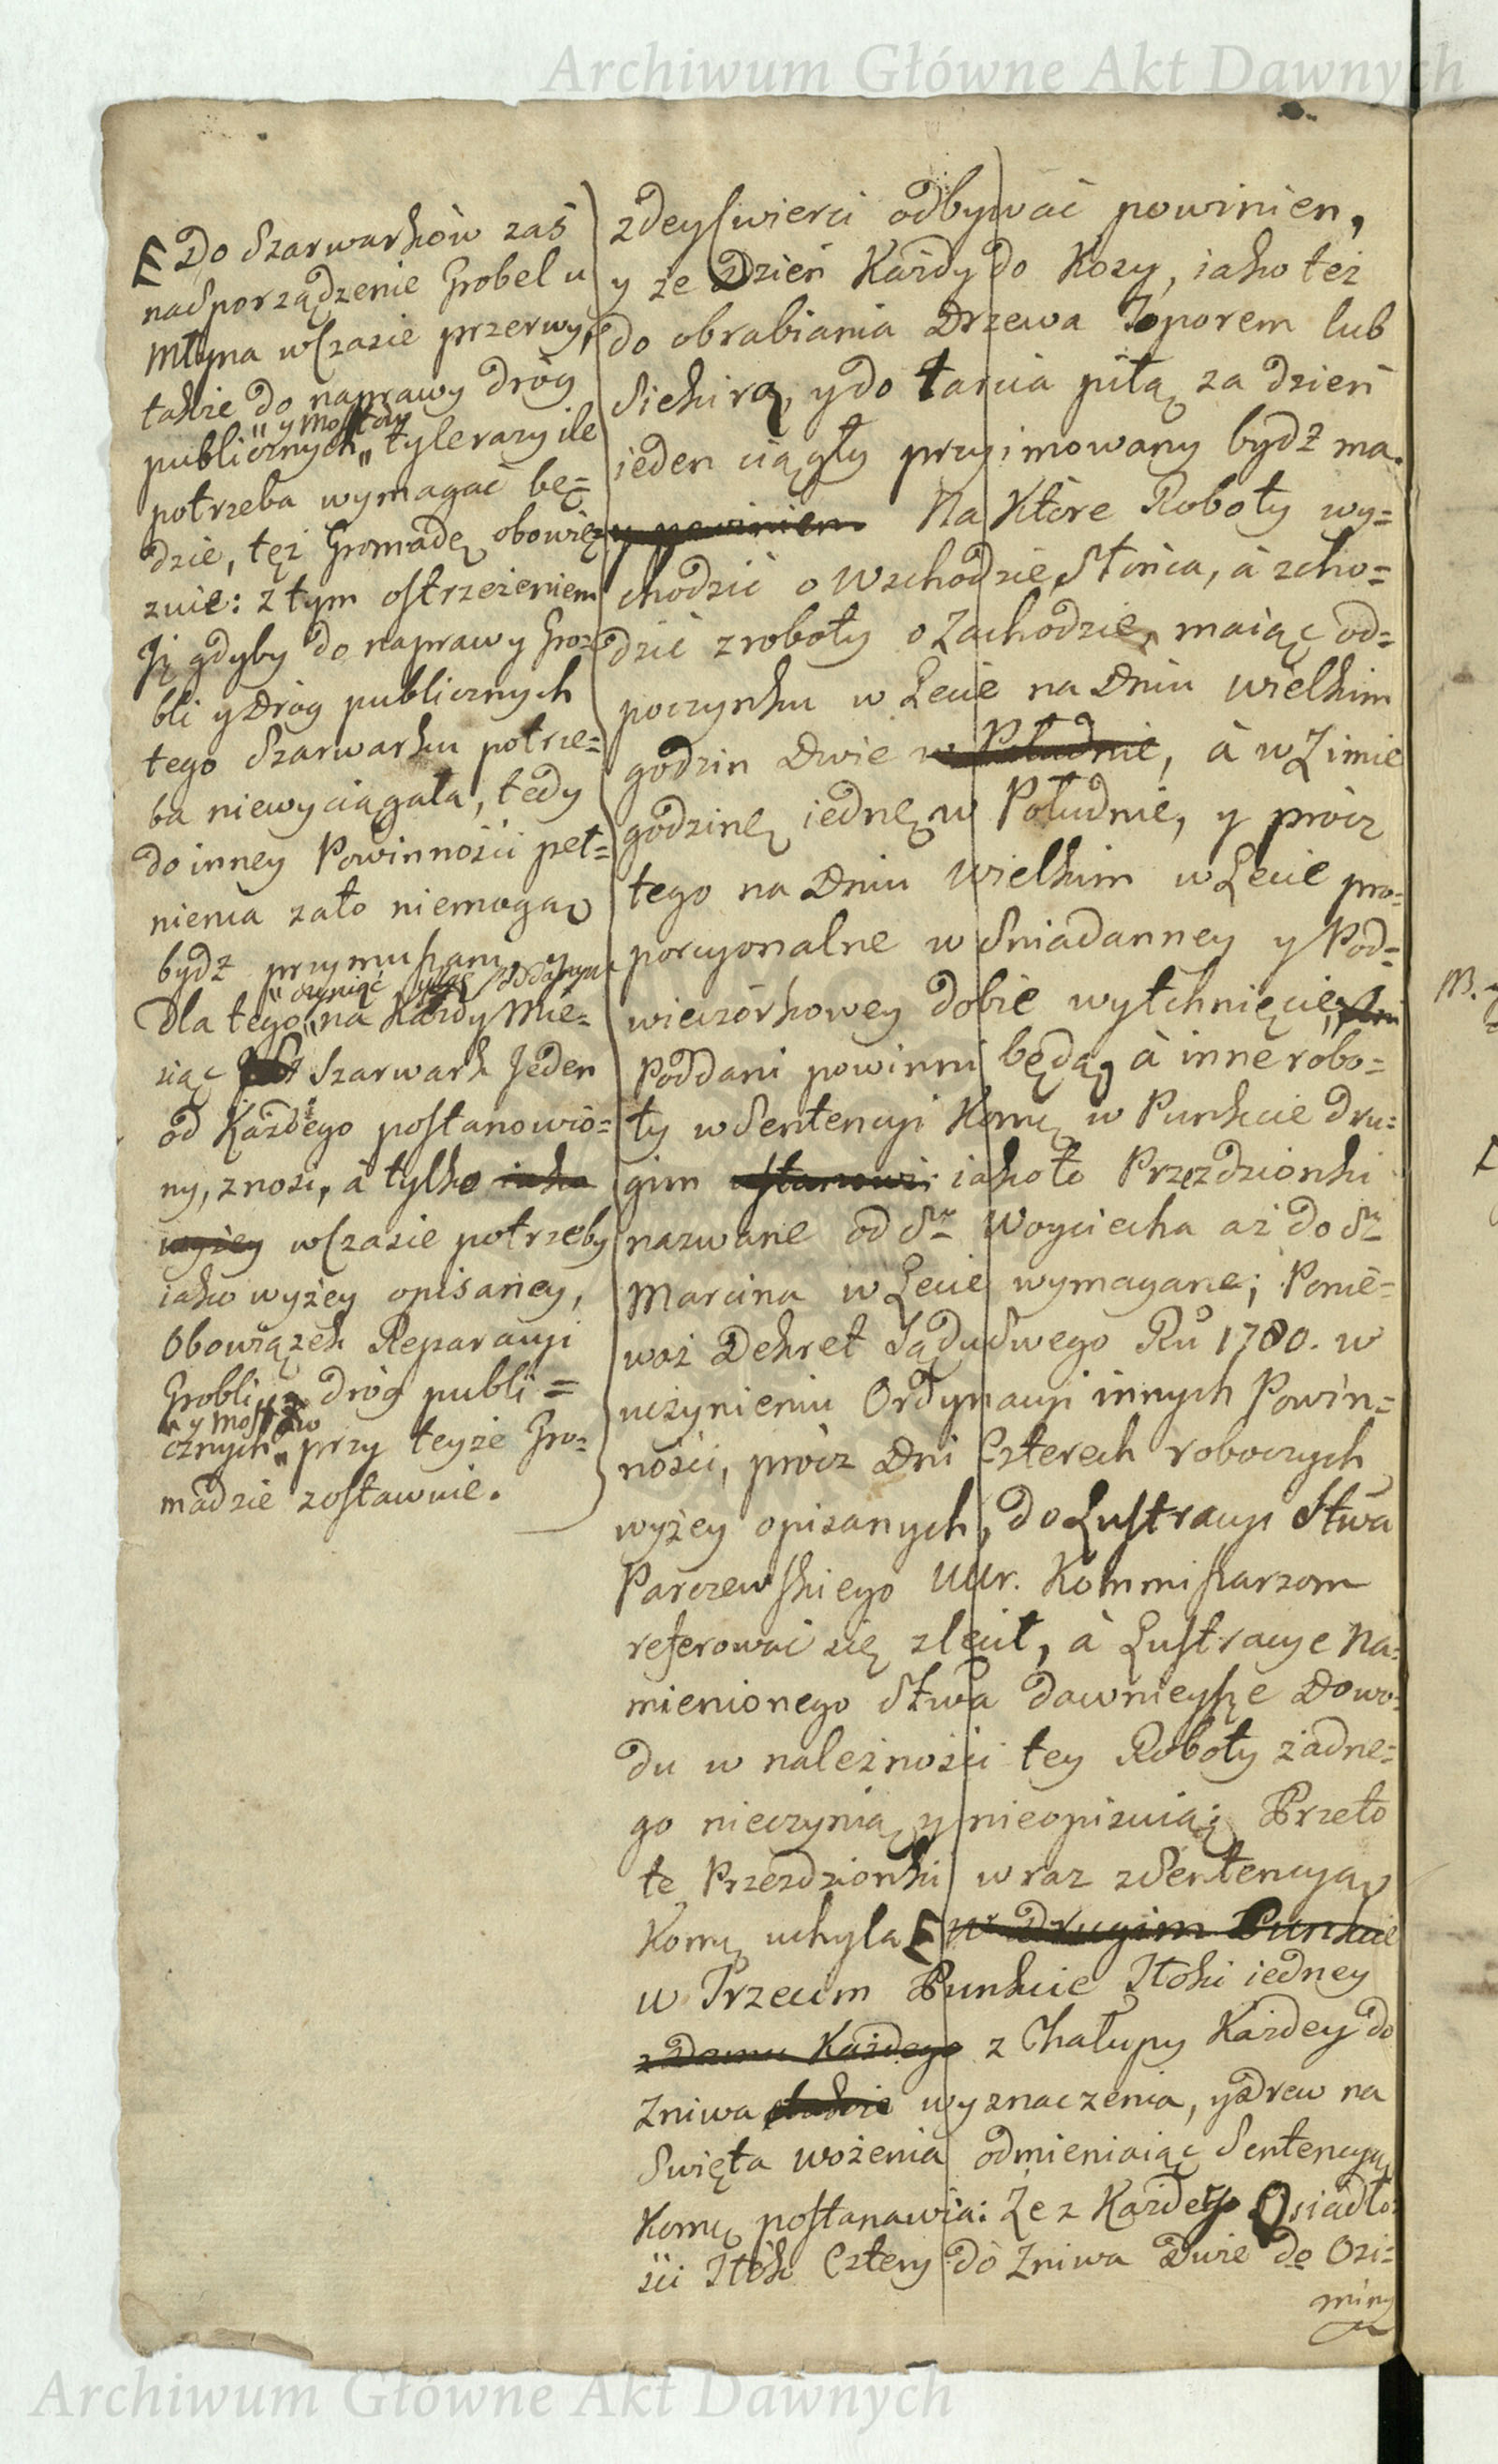 Archiwum Główne Akt Dawnych
Do Szarwarków zaś
nadsporządzenie Grobel u
Młyna w Czasie przerwy,
także do naprawy dróg
" y mostów
publicznych " tyle razy ile
potrzeba wymagać bę=
dzie, tęż Gromadę obowię=
zuie: z tym ostrzeżeniem
Jż gdyby do naprawy Gro=
bli y Dróg publicznych
tego Szarwarku potrze=
ba niewyciągała, tedy
do inney Powinności peł=
nienia zato niemogą
bydź przymuszani, y
" czyniąc ulgę Poddanym
Dla tego " na Każdy Mie=
siąc Szarwark Jeden
od Każdego postanowio=
ny, znosi, à tylko iako
wyżey w Czasie potrzeby
iako wyżey opisaney,
Obowiązek Reparacyi
Grobli y dróg publi=
" y mostów
cznych " przy teyże Gro=
madzie zostawuie.
zdey Cwierci odbywać powinien,
y że Dzień Każdy do Kosy, iako też
do obrabiania Drzewa Toporem lub
Siekirą, y do tarcia piłą za dzień
ieden ciągły przyimowany bydź ma.
y powinien Na Które Roboty wy=
chodzić o Wschodzie Słońca, à zcho=
dzić z roboty o Zachodzie, maiąc od=
poczynku w Lecie na Dniu wielkim
godzin Dwie w Południe, à w Zimie
godzinę iednę w Południe, y prócz
tego na Dniu wielkim w Lecie pro=
porcyonalne w Sniadanney y Pod=
wieczórkowey dobie wytchnięcie
Poddani powinni będą, à inne robo=
ty w Sentencyi Komę w Punkcie dru=
gim ustanowi: iako to Przęzdzionki
nazwane od Sgo Woyciecha aż do Sgo
Marcina w Lecie wymagane; Ponie=
waż Dekret Sądu Swego Ru 1780. w
uczynieniu Ordynacyi innych Powin=
ności, prócz Dni Czterech roboczych
wyżey opisanych, do Lustracyi Stwa
Parczewskiego Uur. Kommissarzom
referować się zlecił, à Lustracye Na=
mienionego Stwa dawnieysze Dowo=
du w należności tey Roboty żadne=
go nieczynią y nieopisuią; Przeto
te Przezdzionki wraz z Sentencyą
Komę uchyla w Drugim Punkcie
w Trzecim Punkcie Tłoki iedney
z Domu Każdego z Chałupy Każdey do
Zniwa także wyznaczenia, y Drew na
Swięta wożenia odmieniaiąc Sentencyą
Komę postanawia: Że z Każdego Osiadło=
ści Tłók Cztery do Zniwa Dwie do Ozi=
miny
Archiwum Główne Akt Dawnych